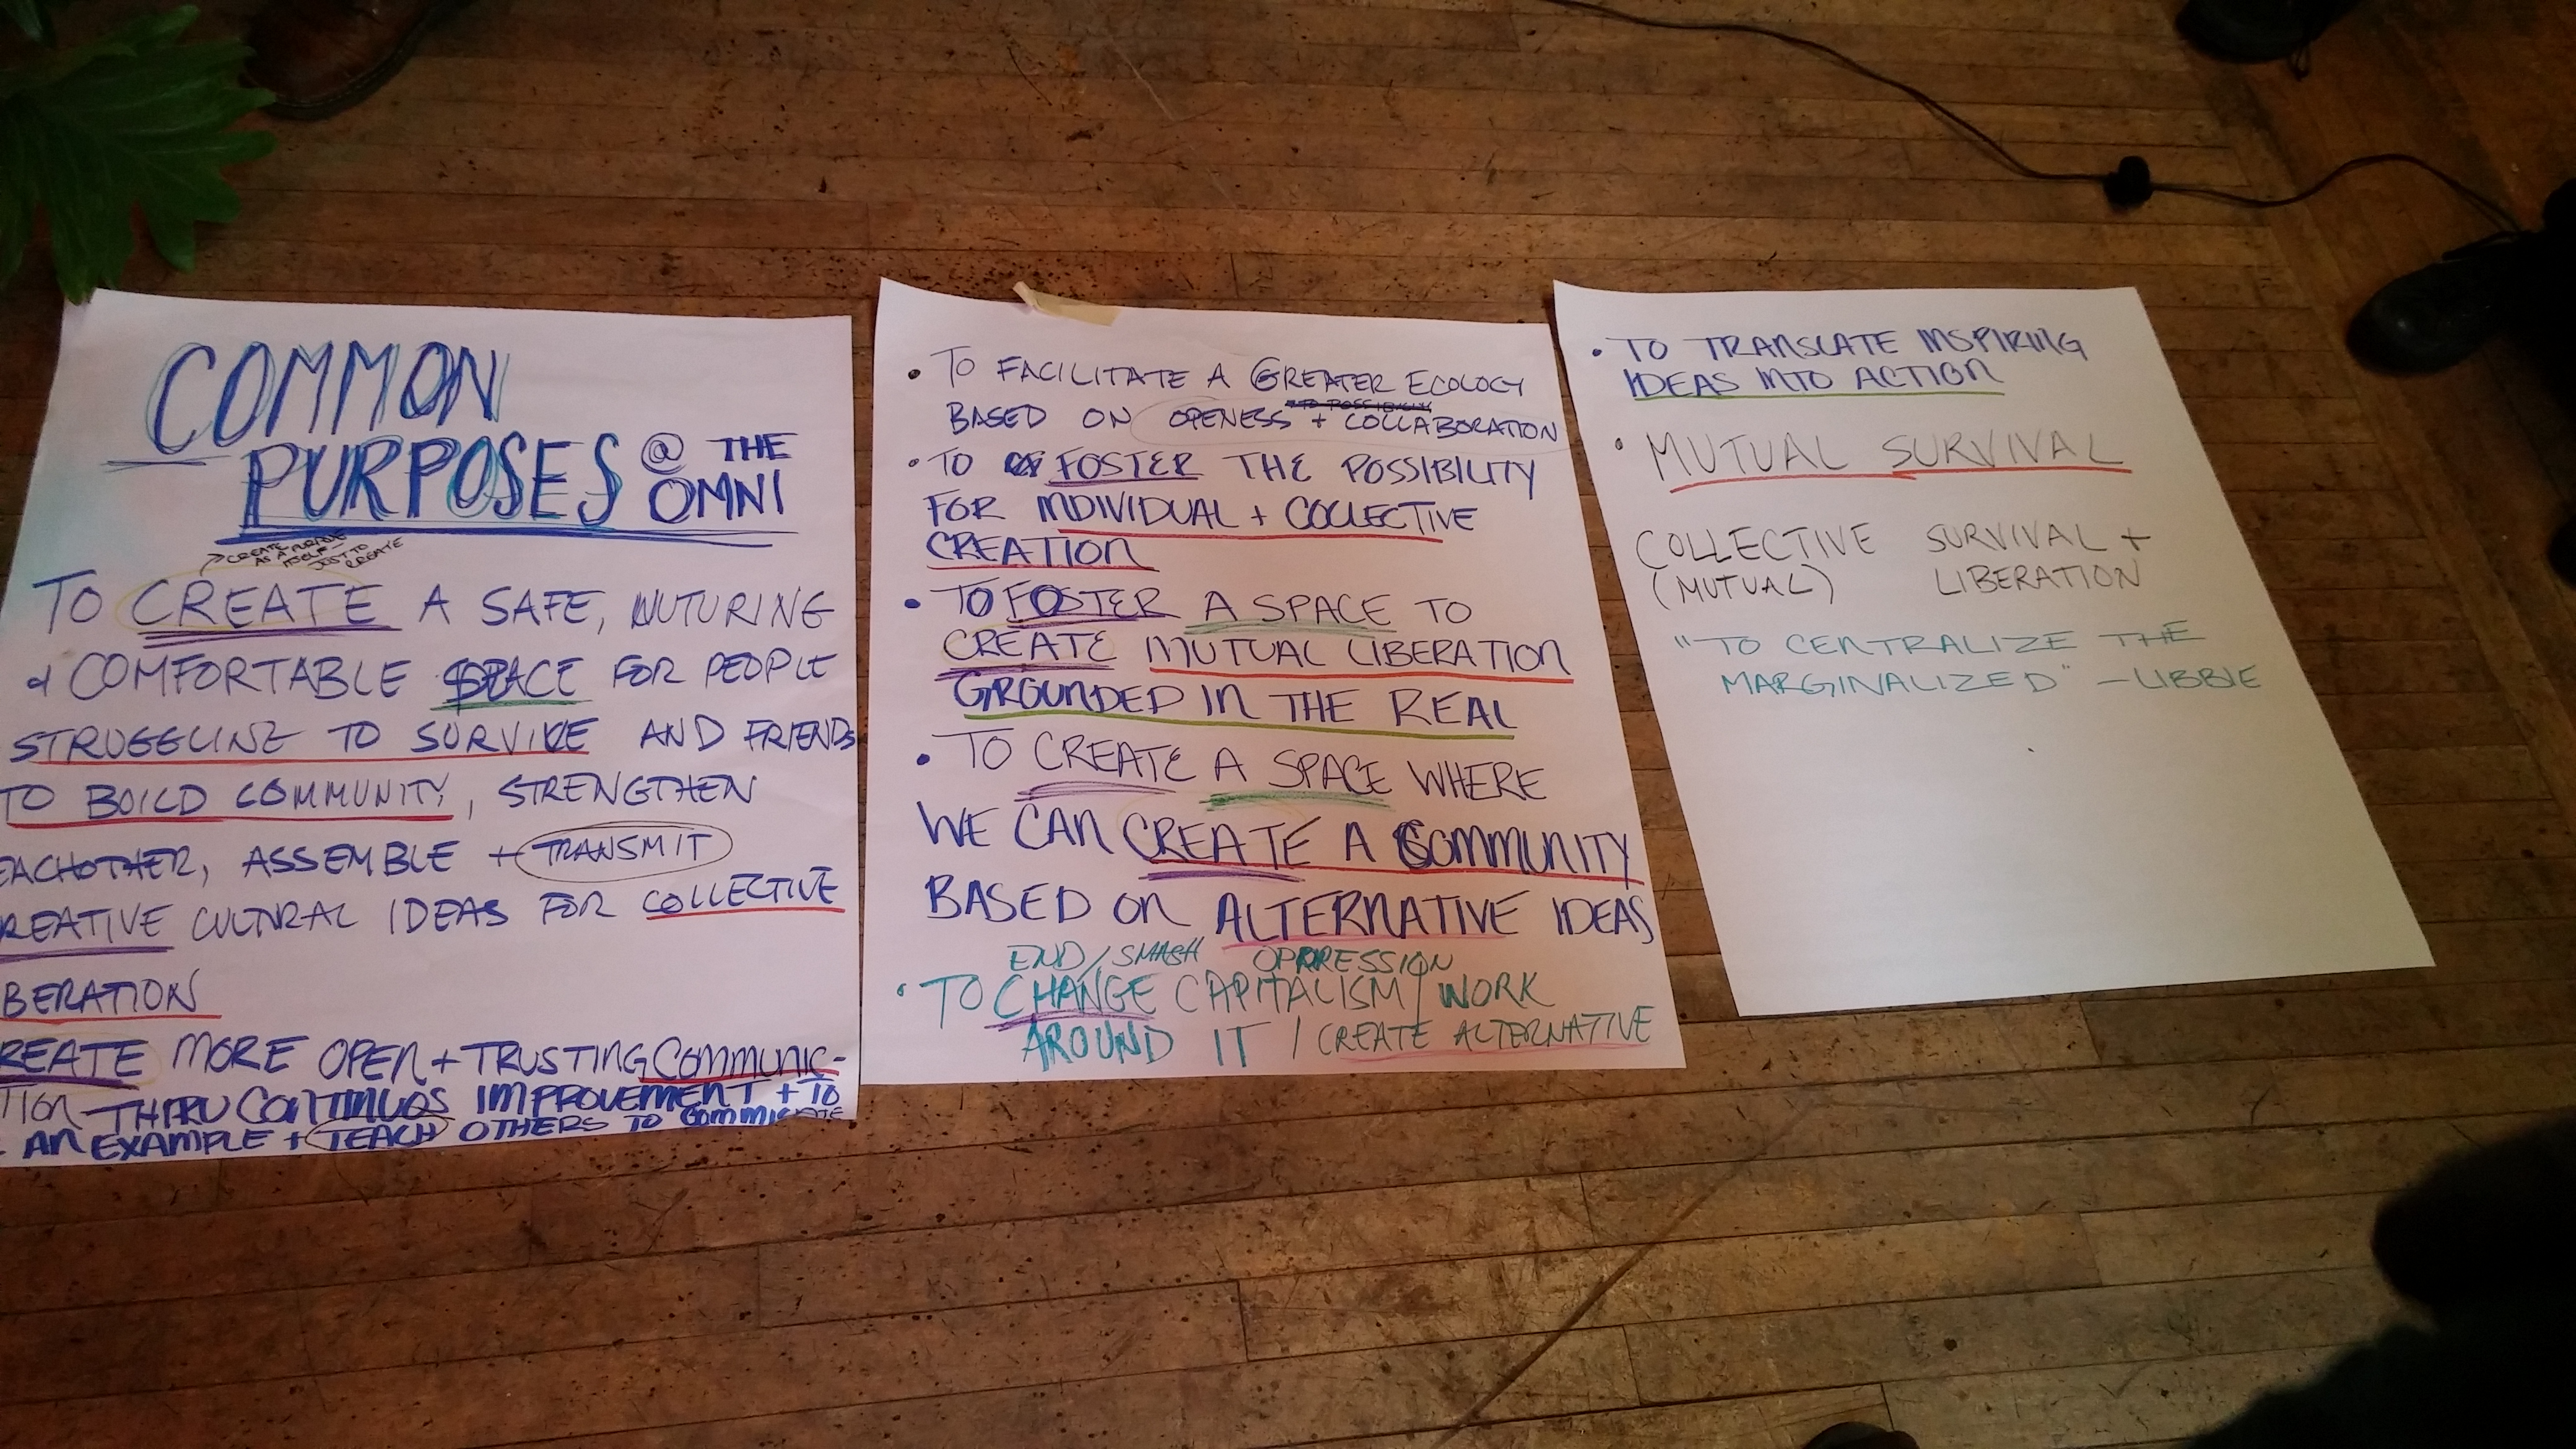 COMMON
PURPOSES @ THE
OMNI
CREATE
AS A PURPOSE
ITSELF -
JUST TO
CREATE
TO CREATE A SAFE, NUTURING
& COMFORTABLE SPACE FOR PEOPLE
STRUGGLING TO SURVIVE AND FRIENDS
TO BUILD COMMUNITY, STRENGTHEN
EACHOTHER, ASSEMBLE + TRANSMIT
REATIVE CULTURAL IDEAS FOR COLLECTIVE
BERATION
REATE MORE OPEN + TRUSTING COMMUNIC-
TION THRU CONTINUOS IMPROVEMENT + TO
AN EXAMPLE + TEACH OTHERS TO
• TO FACILITATE A GREATER ECOLOGY
BASED ON OPENESS + COLLABORATION
• TO FOSTER THE POSSIBILITY
FOR INDIVIDUAL + COLLECTIVE
CREATION
• TO FOSTER A SPACE TO
CREATE MUTUAL LIBERATION
GROUNDED IN THE REAL
• TO CREATE A SPACE WHERE
WE CAN CREATE A COMMUNITY
BASED ON ALTERNATIVE IDEAS
END / SMASH OPPRESSION
• TO CHANGE CAPITALISM / WORK
AROUND IT / CREATE ALTERNATIVE
• TO TRANSLATE INSPIRING
IDEAS INTO ACTION
• MUTUAL SURVIVAL
COLLECTIVE SURVIVAL +
(MUTUAL) LIBERATION
"TO CENTRALIZE THE
MARGINALIZED" - LIBBIE